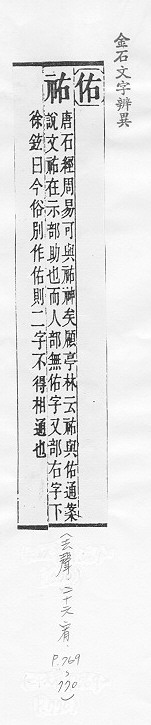 金石文字辨異
佑
祐
唐石經周易可與祐神矣顧亭林云祐與佑通案
說文祐在示部助也而人部無佑字又部右字下
徐鉉曰今俗別作佑則二字不得相通也
(去聲、二十六宥、
P.769
、
770)